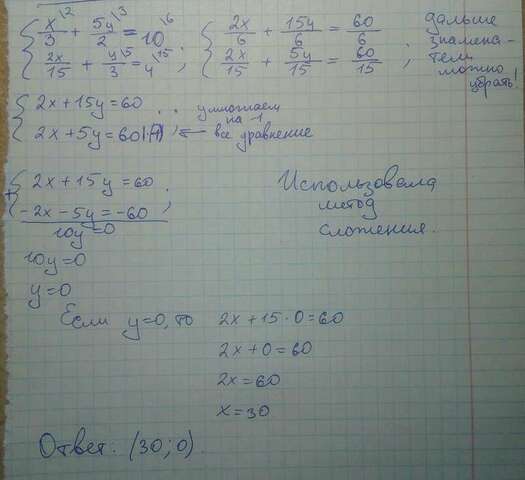 { x/3 \2 + 5y/2 \3 = 10 \6
{ 2x/15 + y/3 \5 = 4 \15 ;
{ 2x/6 + 15y/6 = 60/6
{ 2x/15 + 5y/15 = 60/15 ;
дальше
знамена-
тели
можно
убрать!
{ 2x + 15y = 60
{ 2x + 5y = 60 |·(-1) ;
умножаем
на -1
← все уравнение
+ { 2x + 15y = 60
{ -2x - 5y = -60 ;
10y = 0
10y = 0
y = 0
Использовала
метод
сложения.
Если y=0, то 2x + 15 · 0 = 60
2x + 0 = 60
2x = 60
x = 30
Ответ: (30; 0).